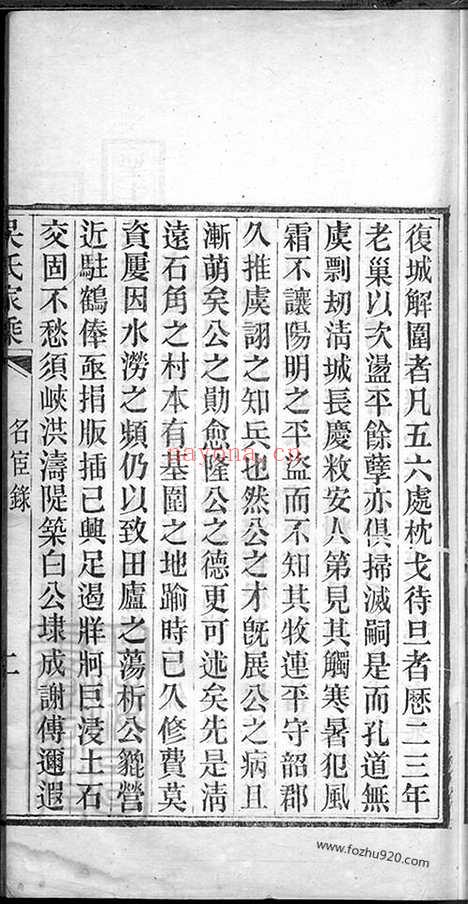 復城解圍者凡五六處枕戈待旦者歷二三年
老巢以次盪平餘孽亦俱掃滅嗣是而孔道無
虞剽刼清城長慶敉安人第見其觸寒暑犯風
霜不讓陽明之平盜而不知其牧連平守韶郡
久推虞詡之知兵也然公之才旣展公之病且
漸萌矣公之勛愈隆公之德更可述矣先是淸
遠石角之村本有基圍之地踰時已久修費莫
資屢因水澇之頻仍以致田廬之蕩析公貔營
近駐鶴俸亟捐版插已興足遏牂牁巨浸土石
交固不愁須峽洪濤隄築白公埭成謝傅邇遐
吳氏家乘
名宦錄
二
nayona.cn
www.fozhu920.com